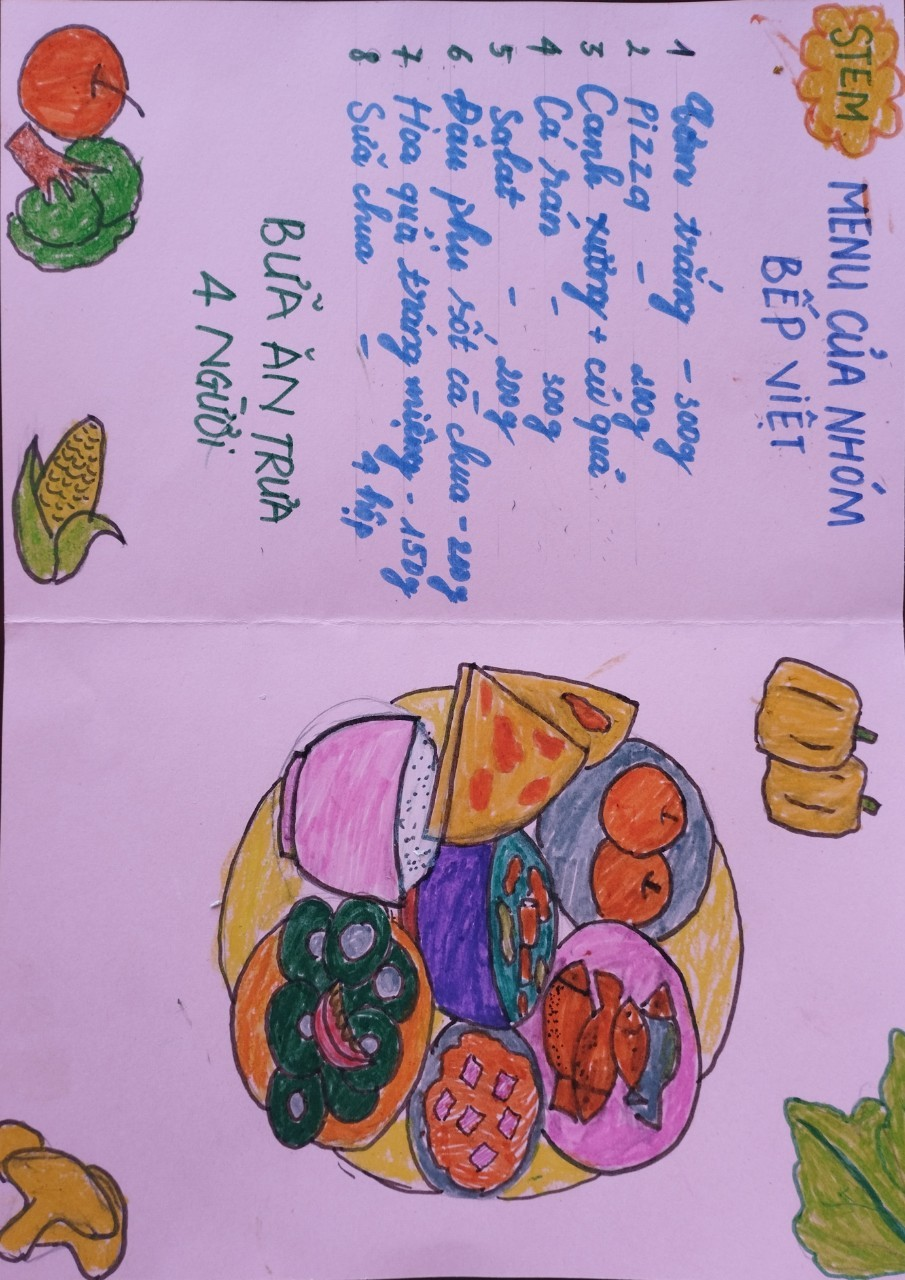 STEM
MENU CỦA NHÓM
BẾP VIỆT
1 Cơm trắng - 300g
2 Pizza - 200g
3 Canh xương + củ quả
4 Cá rán - 300g
5 Salat - 200g
6 Đậu phụ sốt cà chua - 200g
7 Hoa quả tráng miệng - 150g
8 Sữa chua - 4 hộp
BỮA ĂN TRƯA
4 NGƯỜI